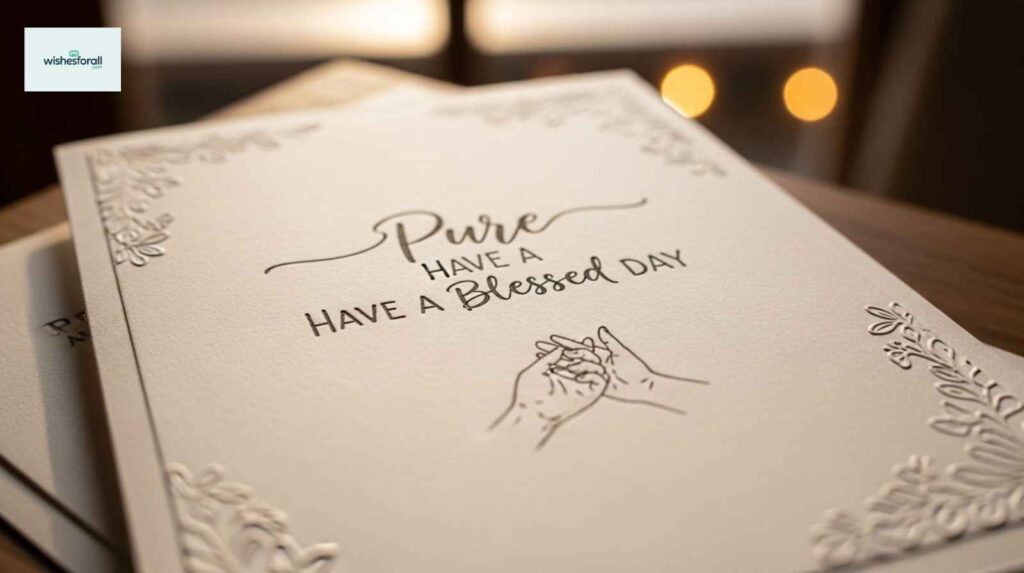 wishesforall
.com
Pure
HAVE A
HAVE A Blessed DAY